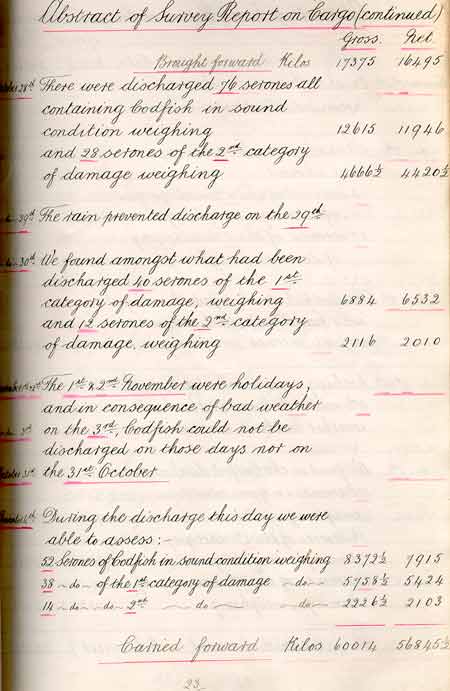 Abstract of Survey Report on Cargo (continued)
Gross. Net.
Brought forward Kilos 17375 16495
October 28th There were discharged 76 serones all
containing Codfish in sound
condition weighing 12615 11946
and 28 serones of the 2nd category
of damage weighing 4666½ 4420½
29th The rain prevented discharge on the 29th
30th We found amongst what had been
discharged 40 serones of the 1st
category of damage, weighing 6884 6532
and 12 serones of the 2nd category
of damage, weighing 2116 2010
The 1st & 2nd November were holidays,
and in consequence of bad weather
3rd on the 3rd, Codfish could not be
discharged on those days nor on
October 31st the 31st October
During the discharge this day we were
able to assess:-
52 Serones of Codfish in sound condition weighing 8372½ 7915
38 -do- of the 1st category of damage -do- 5758½ 5424
14 -do- -do- 2nd -do- -do- 2226½ 2103
Carried forward Kilos 60014 56845½
23